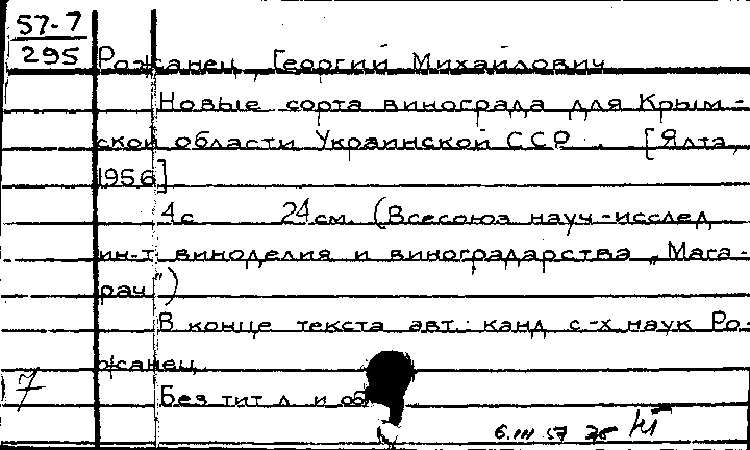 57-7
295
Рожанец, Георгий Михайлович
Новые сорта винограда для Крым-
ской области Украинской ССР. [Ялта,
1956]
4 с 24 см. (Всесоюз науч-исслед
ин-т виноделия и виноградарства „Мага-
рач")
В конце текста авт. канд с-х наук Ро-
жанец
7
Без тит л и об
6.III 57